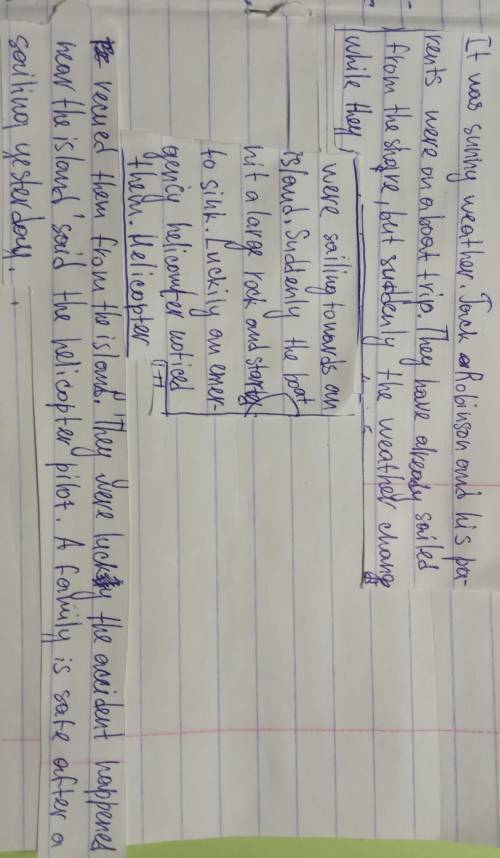 It was sunny weather. Jack Robinson and his pa-
rents were on a boat trip. They have already sailed
from the shore, but suddenly the weather change
while they
were sailing towards an
island. Suddenly the boat
hit a large rock and started
to sink. Luckily an emer-
gency helicopter noticed
them. Helicopter
rescued them from the island. "They were lucky the accident happened
near the island" said the helicopter pilot. A family is safe after a
sailing yesterday.